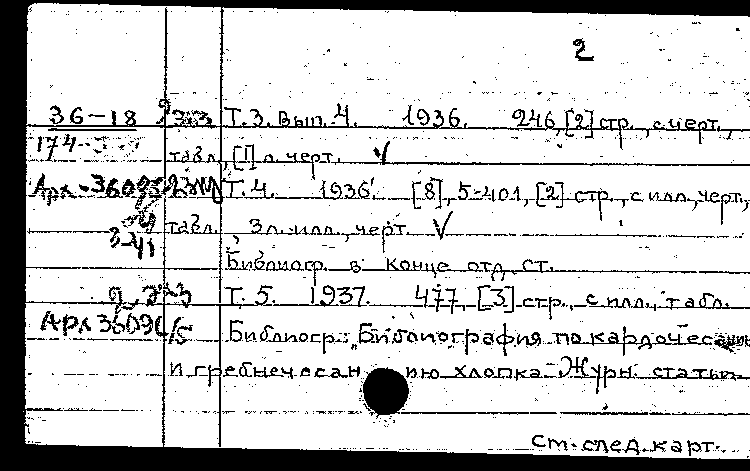 2
36-18 Т.3. Вып. 4. 1936. 246, [2] стр., с черт.,
174 табл., [1] л. черт. ✓
Т. 4. 1936. [8], 5-401, [2] стр., с илл., черт.,
табл., 3 л. илл., черт. ✓
Библиогр. в конце отд. ст.
Т. 5. 1937. 477, [3] стр., с илл., табл.
Арл Библиогр.: „Библиография по кардочесанию
и гребнечесанию хлопка. Журн. статьи
См. след. карт.